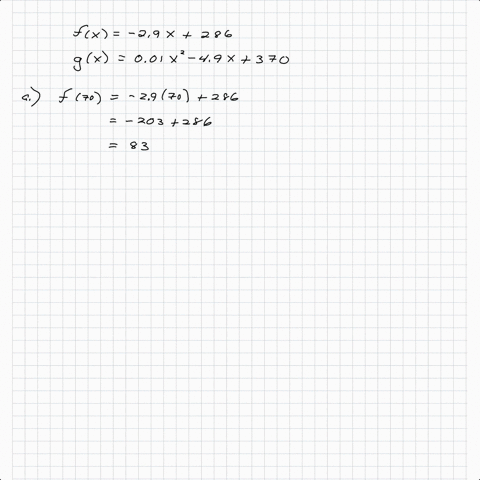 f(x) = -2.9x + 286
g(x) = 0.01x² - 4.9x + 370
a.) f(70) = -2.9(70) + 286
= -203 + 286
= 83